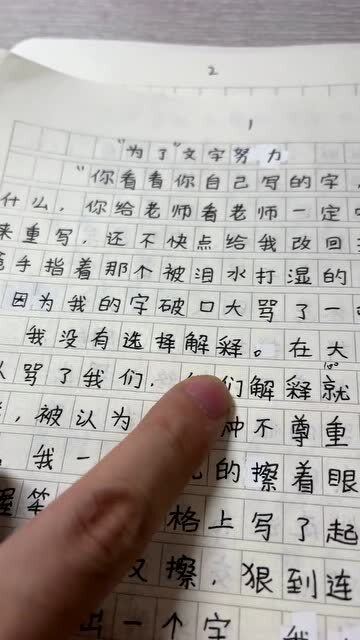 2
1
"为了"文字努力
"你看看你自己写的字,
什么,你给老师看老师一定
来重写,还不快点给我改回
手指着那个被泪水打湿的
因为我的字破口大骂了一
我没有选择解释。在大
骂了我们,们解释就
被认为不尊重
。我一的擦着眼
握笔格上写了起
又擦,狠到连
一个字我